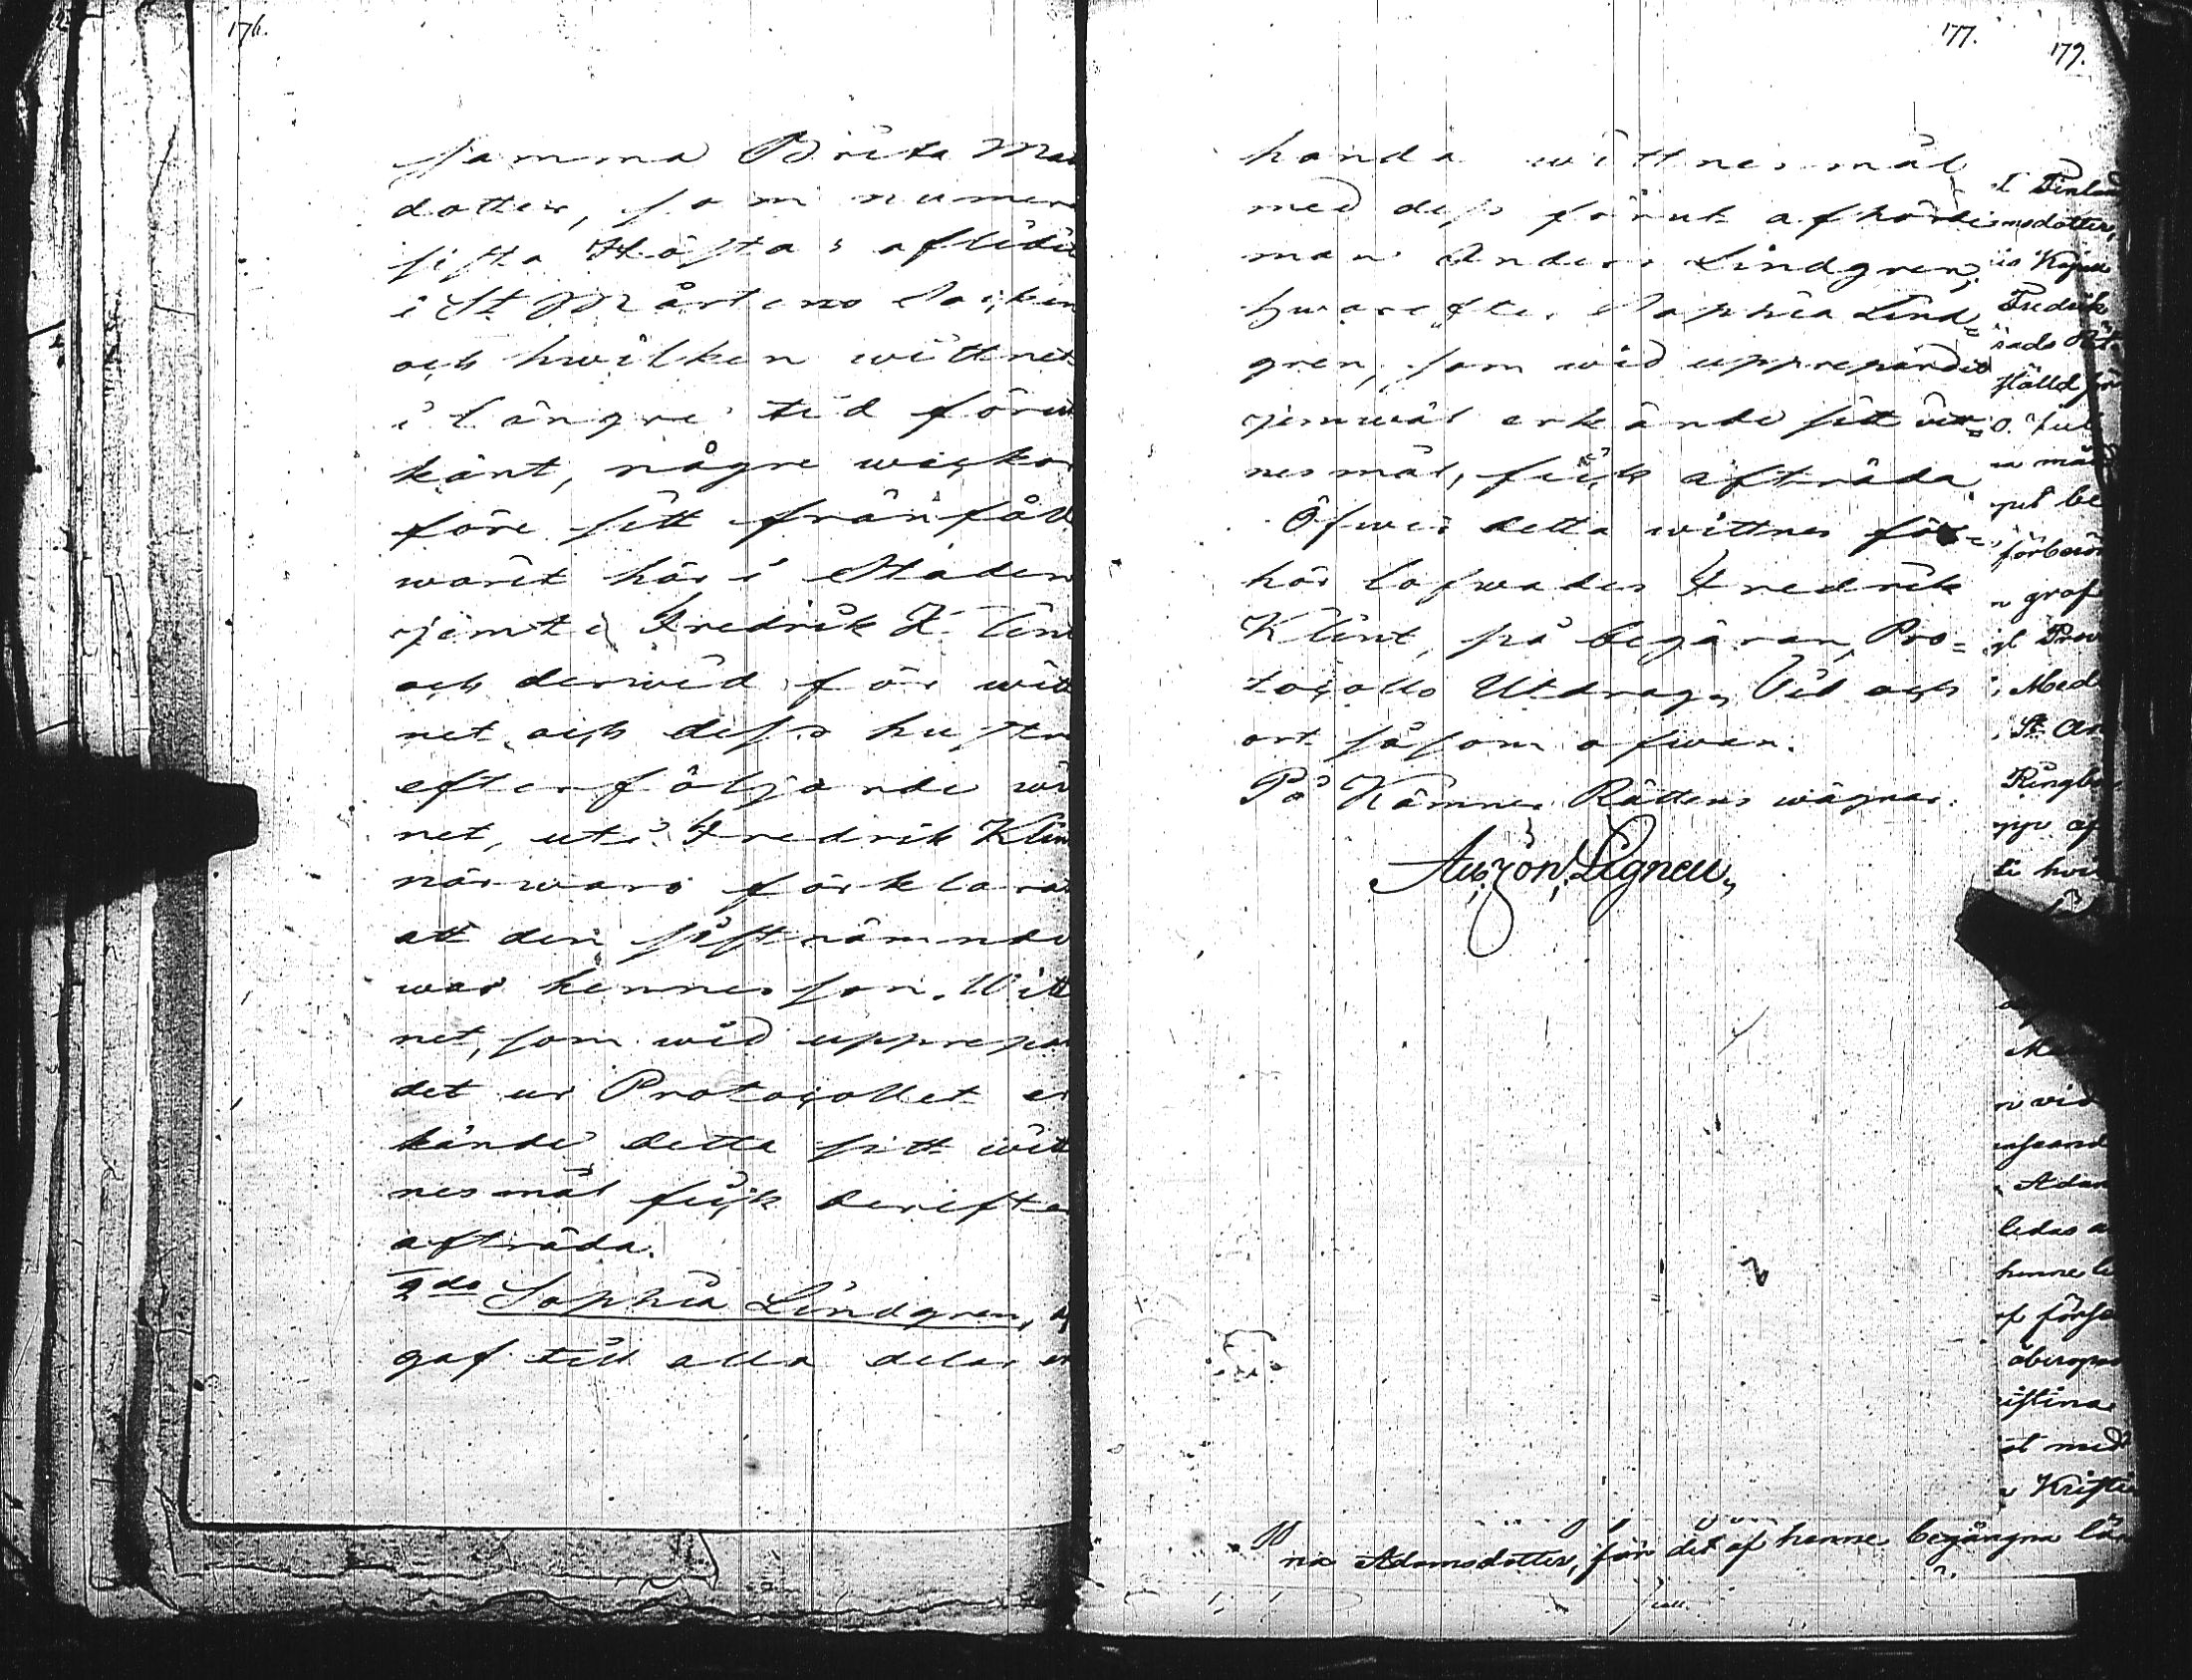 176.
samma Brita Mat
dotter, som numera
sista Höstas aflidit
i St Mårtens Socken
och hwilken wittnet
i längre tid förut
känt, någre weckor
före sitt frånfälle
warit här i Staden
jemte Fredrik Klint
och derwid för witt
net och dess hustru
efterföljande witt
net, uti Fredrik Klints
närwaro förklarat
att den sistnämnde
war hennes son. Witt
net, som wid upprepan
det ur Protocollet er
kände detta sitt witt
nesmål fick derefter
afträda.
2do Sophia Lindgren,
gaf till alla delar en
177.
179.
handa wittnesmål
med dess förut afhörde
man Anders Lindgren,
hwarefter Sophia Lind=
gren, som wid upprepandet
jemwäl erkände sitt witt=
nesmål, fick afträda.
Öfwer detta wittnesför=
hör lofwades Fredrik
Klint, på begäran, Pro=
tocolls Utdrag, Tid och
ort såsom ofwan.
På Kämners Rättens wägnar:
t Finland
msdotter,
Fredrik
ställd för
na mål
n graf
Med
n vid
Adam
ledas
henne
istina
st med
Kristi
na Adamsdotter, för det af henne begångna